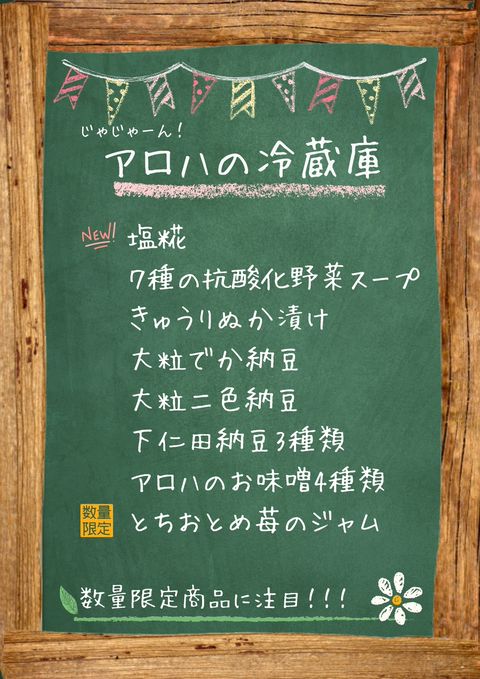 じゃじゃーん!
アロハの冷蔵庫
NEW! 塩糀
7種の抗酸化野菜スープ
きゅうりぬか漬け
大粒でか納豆
大粒二色納豆
下仁田納豆3種類
アロハのお味噌4種類
数量限定 とちおとめ苺のジャム
数量限定商品に注目!!!